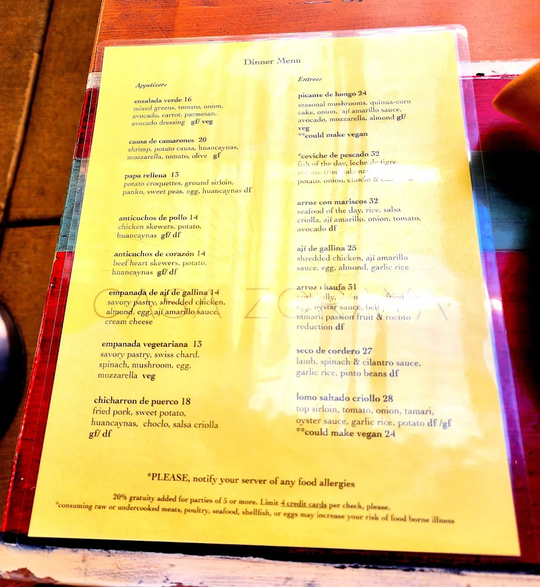 Dinner Menu
Appetizers
ensalada verde 16
mixed greens, tomato, onion,
avocado, carrot, parmesan,
avocado dressing gf/ veg
causa de camarones 20
shrimp, potato causa, huancaynas,
mozzarella, tomato, olive gf
papa rellena 13
potato croquettes, ground sirloin,
panko, sweet peas, egg, huancaynas df
anticuchos de pollo 14
chicken skewers, potato,
huancaynas gf/ df
anticuchos de corazón 14
beef heart skewers, potato,
huancaynas gf/ df
empanada de ají de gallina 14
savory pastry, shredded chicken,
almond, egg, ají amarillo sauce,
cream cheese
empanada vegetariana 13
savory pastry, swiss chard,
spinach, mushroom, egg,
mozzarella veg
chicharron de puerco 18
fried pork, sweet potato,
huancaynas, choclo, salsa criolla
gf/ df
Entrees
picante de hongo 24
seasonal mushrooms, quinua-corn
cake, onion, ají amarillo sauce,
avocado, mozzarella, almond gf/
veg
**could make vegan
*ceviche de pescado 32
fish of the day, leche de tigre,
potato, onion, choclo &
arroz con mariscos 32
seafood of the day, rice, salsa
criolla, ají amarillo, onion, tomato,
avocado df
ají de gallina 25
shredded chicken, ají amarillo
sauce, egg, almond, garlic rice
arroz chaufa 31
fried
egg, oyster sauce, bell
tamari, passion fruit & rocoto
reduction df
seco de cordero 27
lamb, spinach & cilantro sauce,
garlic rice, pinto beans df
lomo saltado criollo 28
top sirloin, tomato, onion, tamari,
oyster sauce, garlic rice, potato df /gf
**could make vegan 24
*PLEASE, notify your server of any food allergies
20% gratuity added for parties of 5 or more. Limit 4 credit cards per check, please.
*consuming raw or undercooked meats, poultry, seafood, shellfish, or eggs may increase your risk of food borne illness